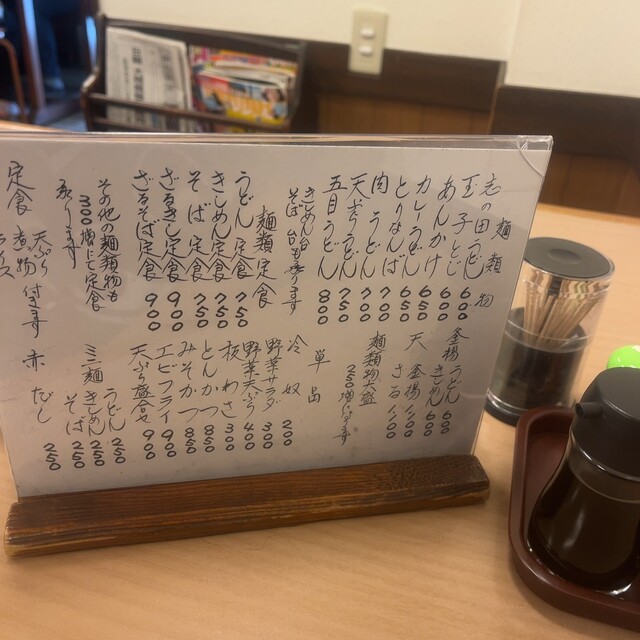 麺類物
志の田うどん 600
玉子とじ 600
あんかけ 600
カレーうどん 650
とりなんば 650
肉うどん 700
天ぷらうどん 750
五目うどん 800
きしめん台
そば台も有ります
麺類定食
うどん定食 750
きしめん定食 750
そば定食 750
ざるきし定食 900
ざるそば定食 900
その他の麺類物も
300増にて定食
承ります
定食
天ぷら
煮物付きます
ライス
釜揚うどん 600
きしめん 600
天釜揚 1,100
天ざる 1,100
麺類物大盛
250増になります
単品
冷奴 200
野菜サラダ 300
野菜天ぷら 400
板わさ 300
とんかつ 850
みそかつ 850
エビフライ 900
天ぷら盛合せ 900
ミニ麺
うどん 250
きしめん 250
そば 250
赤だし 250